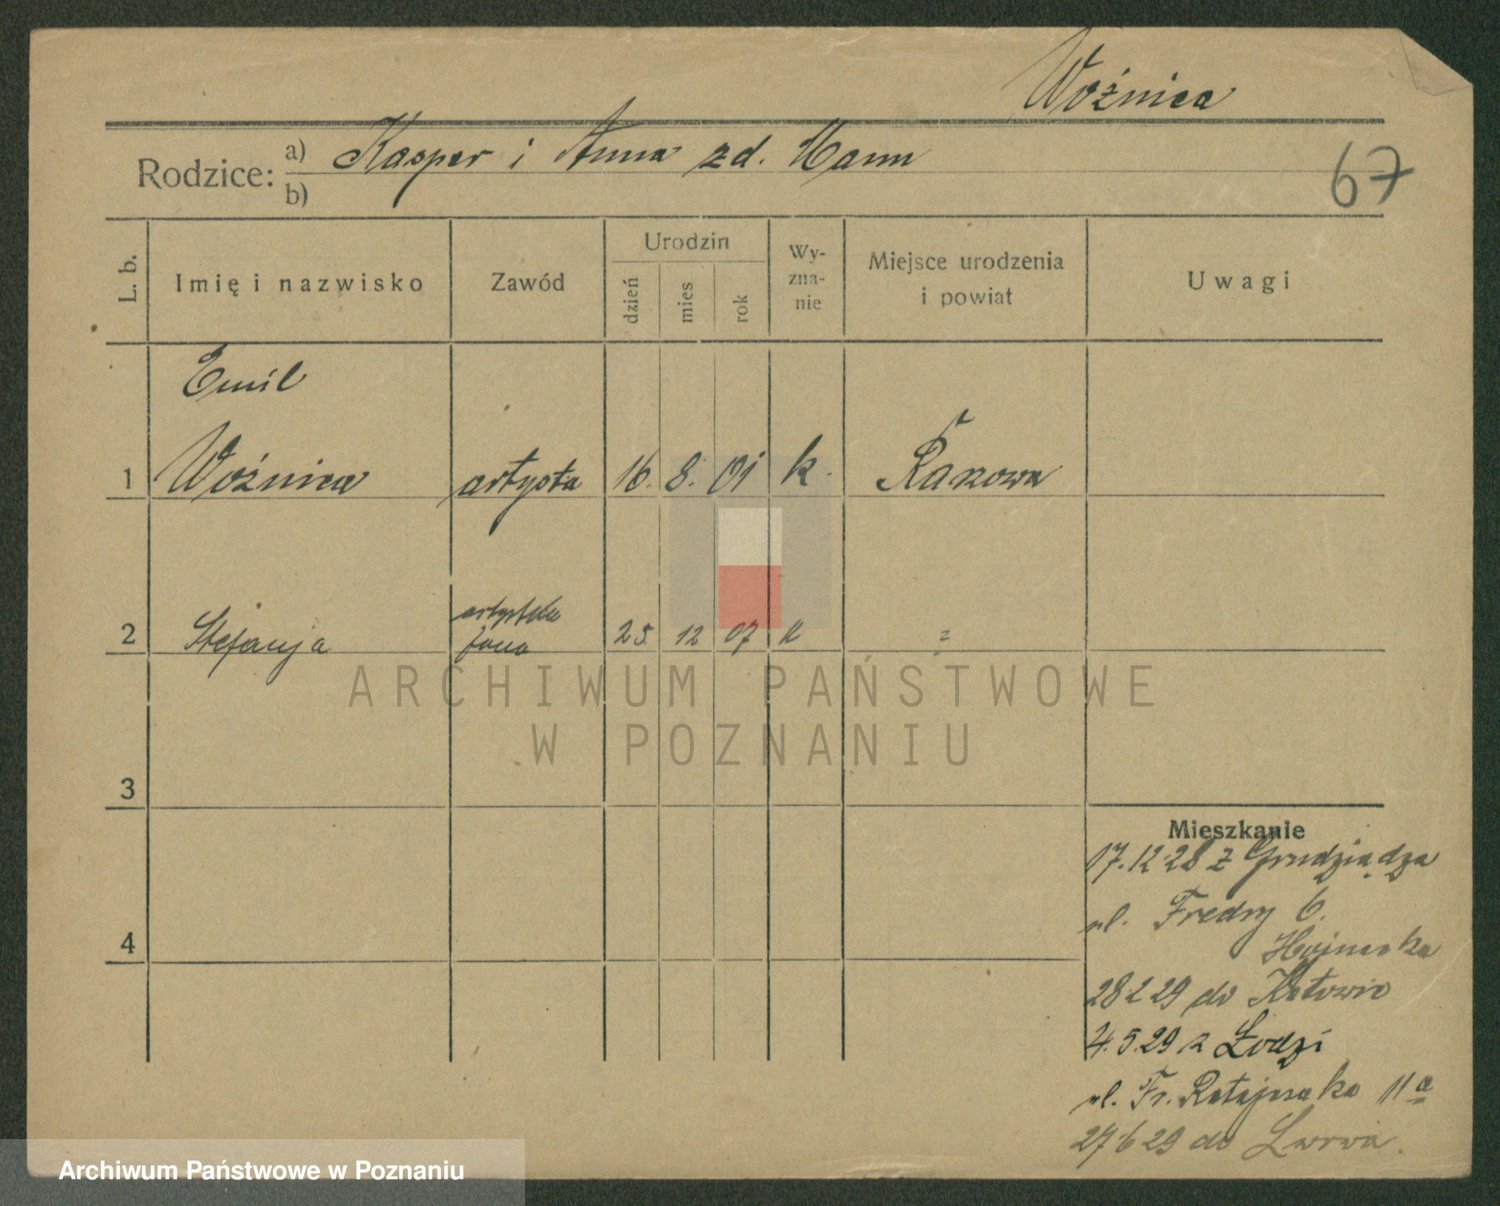 Woźnica
Rodzice: a) Kasper i Anna zd. Mann
b)
67
L. b.
Imię i nazwisko
Zawód
Urodzin
dzień
mies
rok
Wy-
zna-
nie
Miejsce urodzenia
i powiat
Uwagi
Emil
1 Woźnica artysta 16. 8. 01 k. Rakowa
artystka
2 Stefanja żona 25 12 07 k ?
ARCHIWUM PAŃSTWOWE
W POZNANIU
3
4
Mieszkanie
17.12.28 z Grudziądza
ul. Fredry 6.
28 2 29 do Katowic
4.5.29 z Łodzi
ul. Fr. Ratajczaka 11a
27 6 29 do Lwowa.
Archiwum Państwowe w Poznaniu